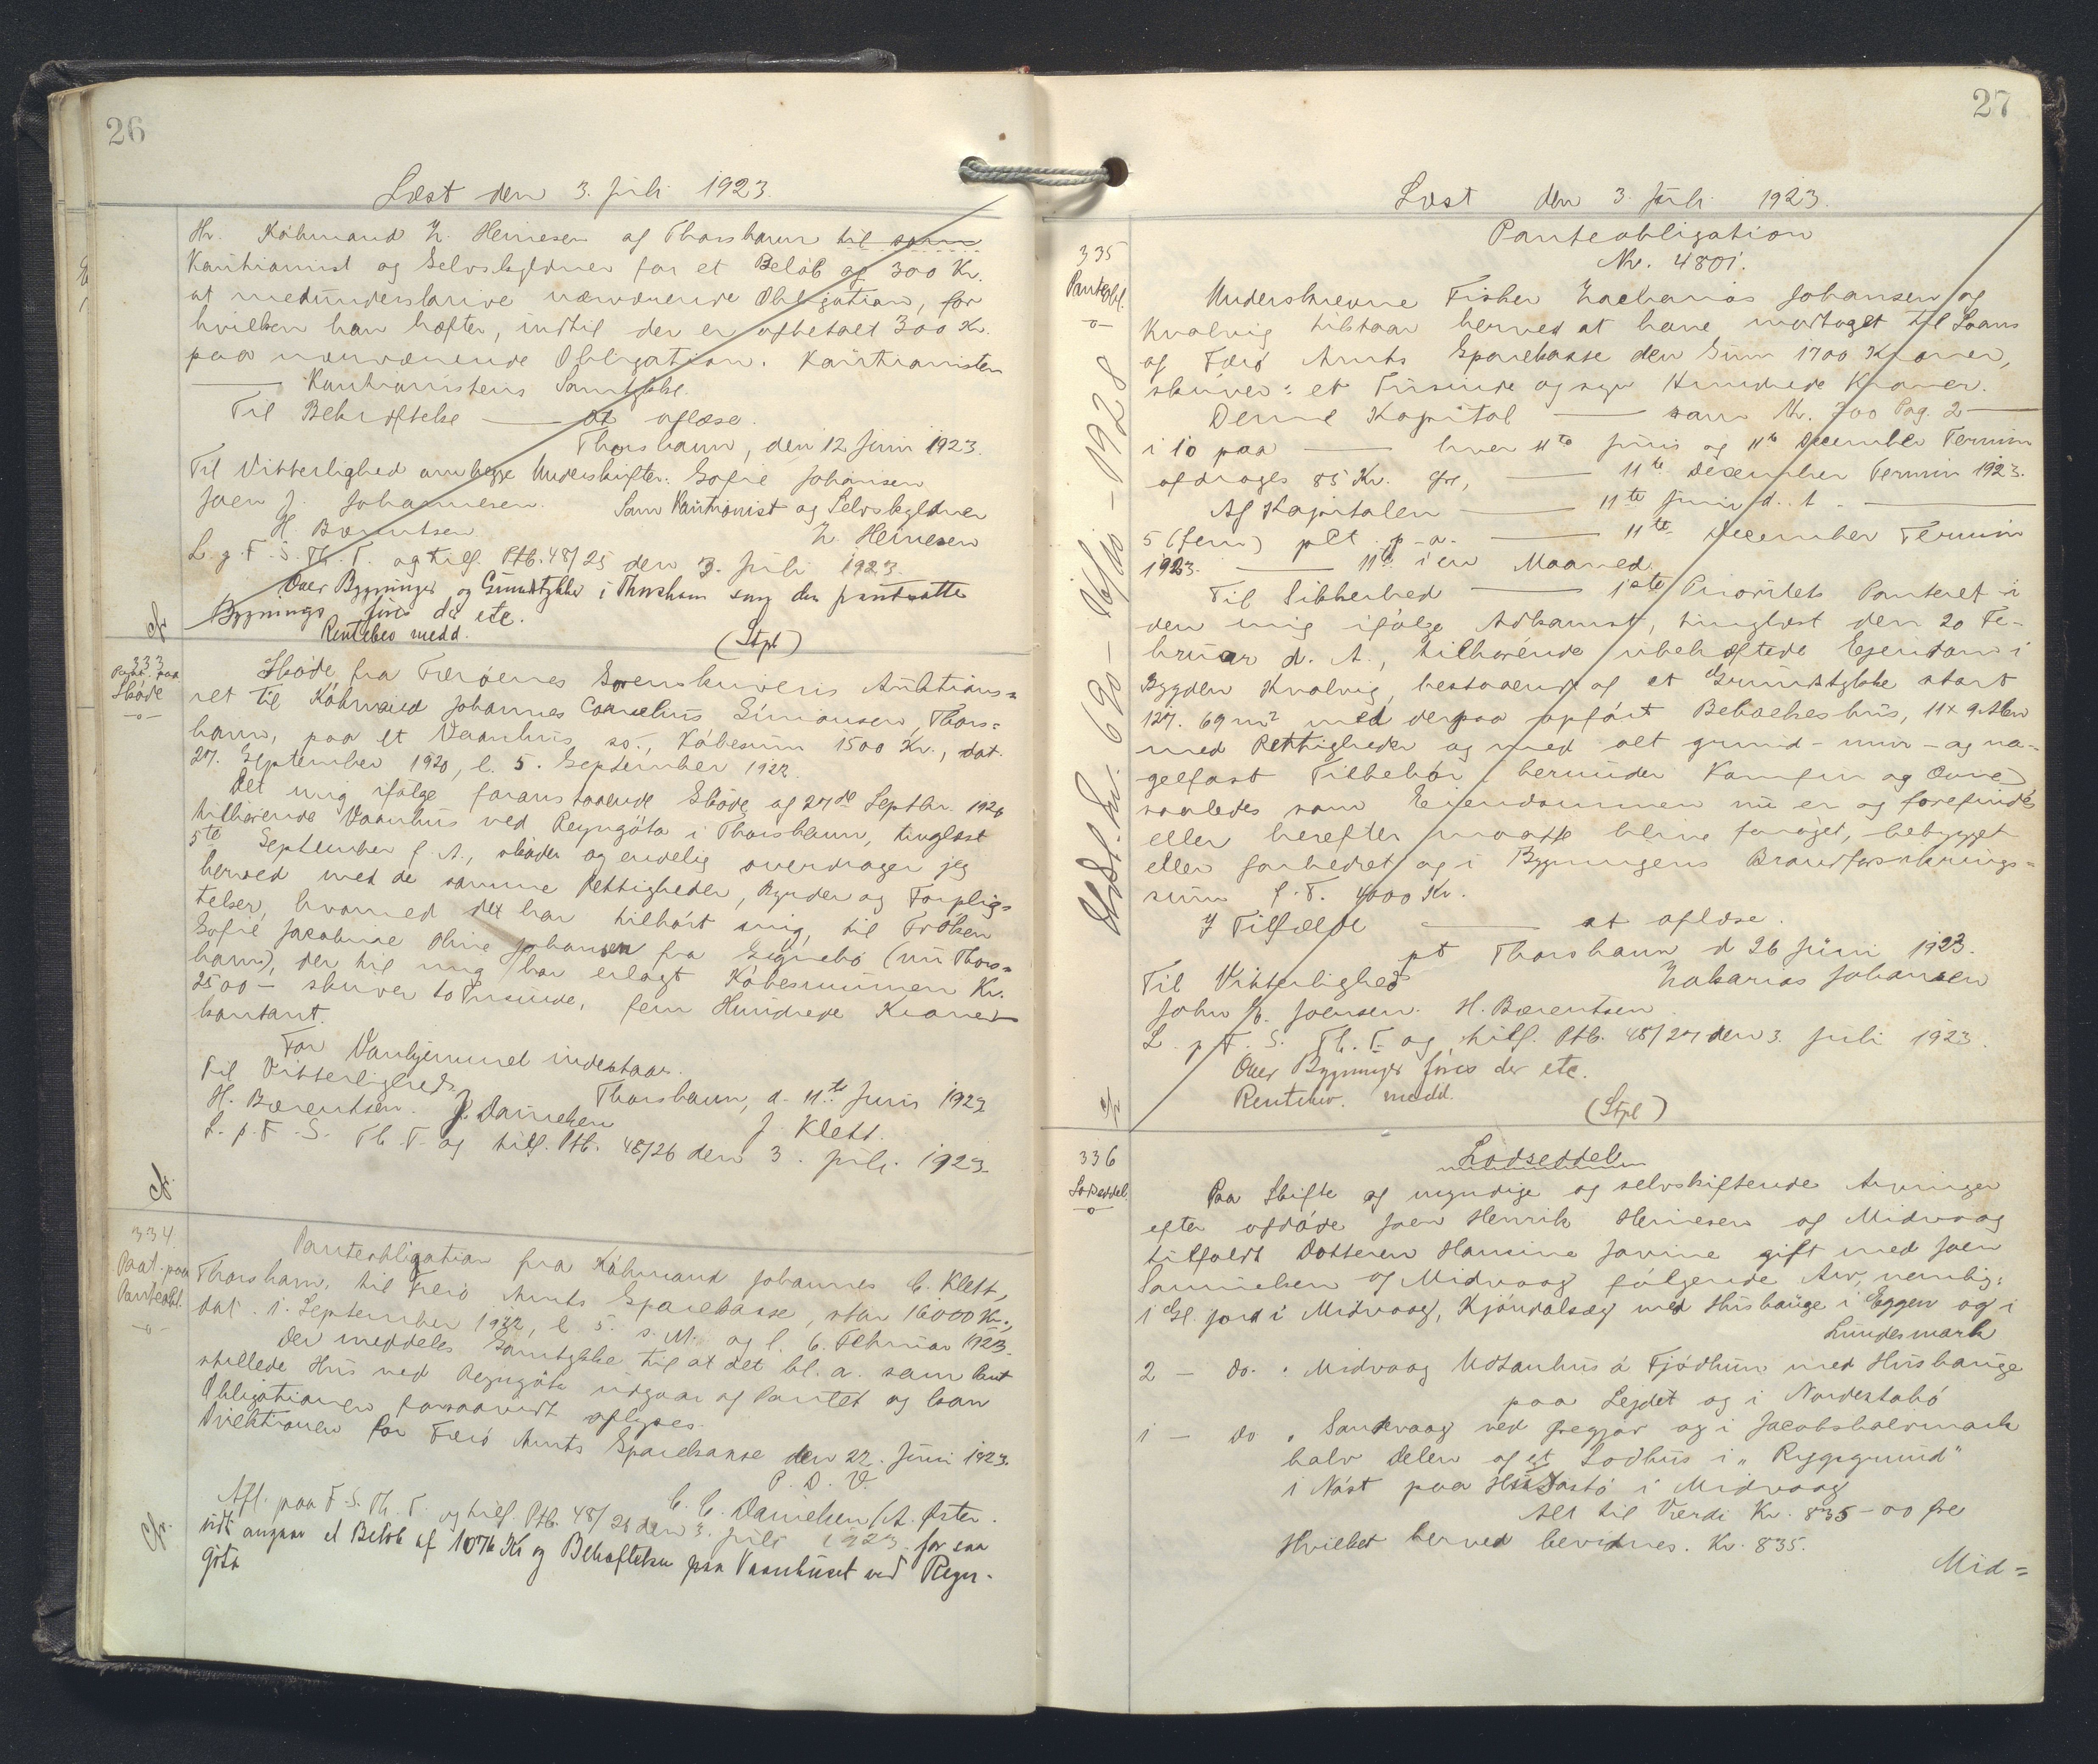 26
Læst den 3. Juli 1923.
Hr. Købmand Z. Heinesen af Thorshavn til som
Kautionist og Selvskyldner for et Beløb af 300 Kr.
at medunderskrive nærværende Obligation, for
hvilken han hæfter, indtil der er afbetalt 300 Kr.
paa nærværende Obligation. Kautionisten
—— Kautionistens Samtykke.
Til Bekræftelse —— at aflæse.
Thorshavn, den 12 Juni 1923.
Til Vitterlighed om begge Underskrifter: Sofie Johansen
Joen J. Johannesen. Som Kautionist og Selvskyldner
H. Bærentsen Z. Heinesen
L. p. F. S. Th. T. og tilf. Ptb. 48/25 den 3. Juli 1923.
Over Bygninger og Grundstykke i Thorshavn som den pantsatte
Bygnings fins der etc.
cfr.
Rentebev medd. (Stpl)
333
Paat. paa
Skøde
Skøde fra Færøernes Sorenskriveris Auktions=
ret til Købmand Johannes Cornelius Simonsen, Thors=
havn, paa et Vaanhus so., Købesum 1500 Kr., dat.
27. September 1920, l. 5. September 1922.
Det mig ifølge foranstaaende Skøde af 27de Septbr. 1920
tilhørende Vaanhus ved Reyngöta i Thorshavn, tinglæst
5te September f. A., skøder og endelig overdrager jeg
herved med de samme Rettigheder, Byrder og Forplig=
telser, hvormed det har tilhørt mig, til Frøken
Sofie Jacobine Oline Johansen fra Gijnebø (nu Thors=
havn), der til mig har erlagt Købesummen Kr.
2500 — skriver to Tusinde, fem Hundrede Kroner
kontant.
For Vanhjemmel indestaar.
Til Vitterlighed: Thorshavn, d. 11te Juni 1923
H. Bærentsen. J. Danielsen J. Klett.
L. p. F. S. Th. T. og tilf. Ptb. 48/26 den 3. Juli 1923.
cfr.
334.
Paat. paa
Panteobl.
Panteobligation fra Købmand Johannes C. Klett,
Thorshavn, til Færø Amts Sparekasse, stor 16000 Kr.,
dat. 1. September 1922, l 5. s. M. og l. 6. Februar 1923.
Der meddeles Samtykke til at det bl. a. som Pant
stillede Hus ved Reyngöta udgaar af Pantet og kan
Obligationen forsaavidt aflyses.
Direktionen for Færø Amts Sparekasse den 22. Juni 1923.
P. D. V.
C. C. Danielsen / A. Øster.
Afl. paa F. S. Th. T. og tilf. Ptb. 48/28 den 3. Juli 1923. for saa
vidt angaar et Beløb af 1076 Kr og Behæftelsen paa Vaanhuset ved Reyn-
göta
cfr.
27
Læst den 3. Juli 1923.
335
Panteobl.
Panteobligation
Nr. 4801.
Underskrevne Fisker Zacharias Johansen af
Kvalvig tilstaar herved at have modtaget til Laans
af Færø Amts Sparekasse den Sum 1700 Kroner,
skriver: et Tusinde og syv Hundrede Kroner.
Denne Kapital —— som Nr. 300 Pag. 2 ——
i 10 paa —— hver 11te Junis og 11te December Termin
afdrages 85 Kr. Øre, —— 11te December Termin 1923.
Af Kapitalen —— 11te Juni d. A. ——
5 (fem) pCt. p. a. —— 11te December Termin
1923. —— 11te i en Maaned.
Til Sikkerhed —— 1ste Prioritets Panteret i
den mig ifølge Adkomst, tinglæst den 20 Fe-
bruar d. A., tilhørende ubehæftede Ejendom i
Bygden Kvalvig, bestaaende af et Grundstykke stort
127. 69 m² med derpaa opført Beboelseshus, 11 x 9 Alen
med Rettigheder og med alt grund- mur- og na-
gelfast Tilbehør (herunder Komfur og Ovne)
saaledes som Ejendommen nu er og forefindes
eller herefter maatte blive forøget, bebygget
eller forbedret og i Bygningens Brandforsikrings=
sum p. T. 4000 Kr.
I Tilfælde —— at aflæse.
pt Thorshavn d 26 Juni 1923.
Til Vitterlighed Zakarias Johansen
John H. Joensen. H. Bærentsen.
L. p. F. S. Th. T. og tilf. Ptb. 48/27 den 3. Juli 1923.
Over Bygninger fins der etc.
Rentebev. medd. (Stpl)
cfr.
Udsl. Ln. 690 - 16/10 - 1928
336
Lodseddel.
Lodseddel
Paa Skifte af myndige og selvskiftende Arvinger
efter afdøde Joen Henrik Heinesen af Midvaag
tilfaldt Datteren Hansine Javine gift med Joen
Samuelsen af Midvaag følgende Arv, nemlig:
1 Gl. Jord i Midvaag, Kjøndalsæg med Hushauge i Eggen og i
Lundesmark
2 — do. " Midvaag Udtanhus á Fjödhum med Husbauge
paa Lejdet og i Nordestabö
1 — do " Sandvaag ved Gregjar og i Jacobsboermark
halv Delen af et Lodhus i "Ryggrund"
i Nøst paa Hustastö i Midvaag
Alt til Værdi Kr. 835 - 00 Øre
Hvilket herved bevidnes. Kr. 835.
Mid=